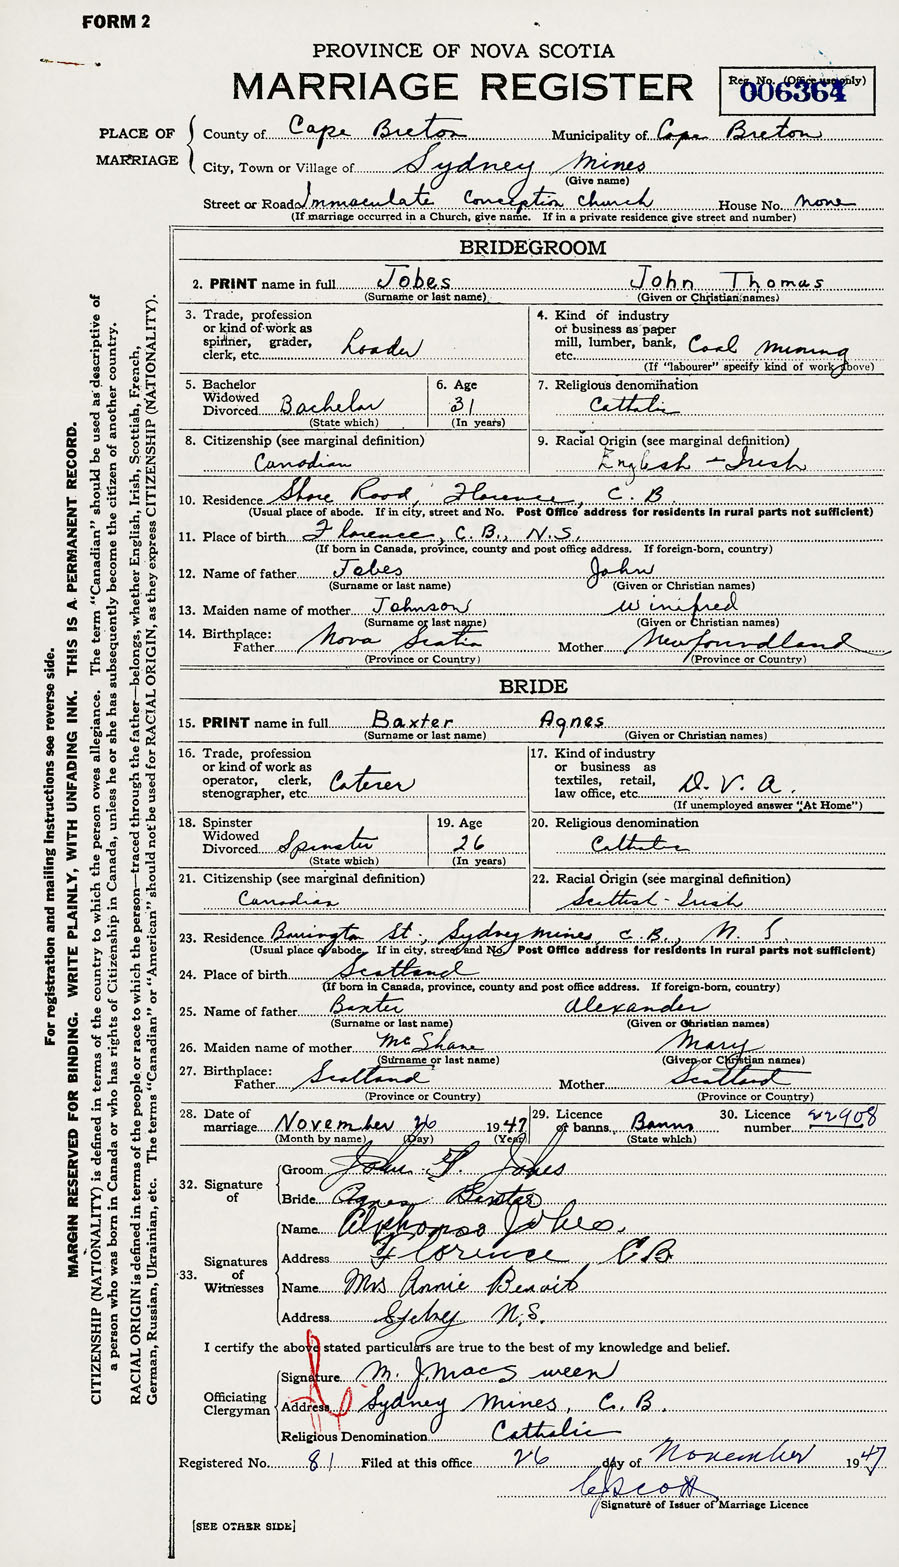 FORM 2
PROVINCE OF NOVA SCOTIA
MARRIAGE REGISTER
Reg. No. (Office use only)
006364
PLACE OF MARRIAGE
County of Cape Breton Municipality of Cape Breton
City, Town or Village of Sydney Mines
(Give name)
Street or Road Immaculate Conception Church House No. none
(If marriage occurred in a Church, give name. If in a private residence give street and number)
BRIDEGROOM
2. PRINT name in full Jobes John Thomas
(Surname or last name) (Given or Christian names)
3. Trade, profession or kind of work as spinner, grader, clerk, etc. Loader
4. Kind of industry or business as paper mill, lumber, bank, etc. Coal Mining
(If "labourer" specify kind of work above)
5. Bachelor Widowed Divorced Bachelor
(State which)
6. Age 31
(In years)
7. Religious denomination Catholic
8. Citizenship (see marginal definition) Canadian
9. Racial Origin (see marginal definition) English - Irish
10. Residence Shore Road, Florence, C. B
(Usual place of abode. If in city, street and No. Post Office address for residents in rural parts not sufficient)
11. Place of birth Florence, C. B., N.S.
(If born in Canada, province, county and post office address. If foreign-born, country)
12. Name of father Jobes John
(Surname or last name) (Given or Christian names)
13. Maiden name of mother Johnson Winifred
(Surname or last name) (Given or Christian names)
14. Birthplace: Father Nova Scotia Mother Newfoundland
(Province or Country) (Province or Country)
BRIDE
15. PRINT name in full Baxter Agnes
(Surname or last name) (Given or Christian names)
16. Trade, profession or kind of work as operator, clerk, stenographer, etc. Caterer
17. Kind of industry or business as textiles, retail, law office, etc. D. V. A.
(If unemployed answer "At Home")
18. Spinster Widowed Divorced Spinster
(State which)
19. Age 26
(In years)
20. Religious denomination Catholic
21. Citizenship (see marginal definition) Canadian
22. Racial Origin (see marginal definition) Scottish - Irish
23. Residence St., Sydney Mines C. B., N. S.
(Usual place of abode. If in city, street and No. Post Office address for residents in rural parts not sufficient)
24. Place of birth Scotland
(If born in Canada, province, county and post office address. If foreign-born, country)
25. Name of father Baxter Alexander
(Surname or last name) (Given or Christian names)
26. Maiden name of mother McShane Mary
(Surname or last name) (Given or Christian names)
27. Birthplace: Father Scotland Mother Scotland
(Province or Country) (Province or Country)
28. Date of marriage November 26 1947
(Month by name) (Day) (Year)
29. Licence or banns Banns
(State which)
30. Licence number 22908
32. Signature of
Groom John T. Jobes
Bride Agnes Baxter
33. Signatures of Witnesses
Name Alphonso Jobes.
Address Florence C B
Name Mrs Annie Benoit
Address Sydney N.S.
I certify the above stated particulars are true to the best of my knowledge and belief.
Officiating Clergyman
Signature M. J. MacSween
Address Sydney Mines, C. B.
Religious Denomination Catholic
Registered No. 81 Filed at this office 26 day of November 1947
C J Scott
Signature of Issuer of Marriage Licence
[SEE OTHER SIDE]
For registration and mailing instructions see reverse side.
MARGIN RESERVED FOR BINDING. WRITE PLAINLY, WITH UNFADING INK. THIS IS A PERMANENT RECORD.
CITIZENSHIP (NATIONALITY) is defined in terms of the country to which the person owes allegiance. The term "Canadian" should be used as descriptive of
a person who was born in Canada or who has rights of Citizenship in Canada, unless he or she has subsequently become the citizen of another country.
RACIAL ORIGIN is defined in terms of the people or race to which the person—traced through the father—belongs, whether English, Irish, Scottish, French,
German, Russian, Ukrainian, etc. The terms "Canadian" or "American" should not be used for RACIAL ORIGIN, as they express CITIZENSHIP (NATIONALITY).